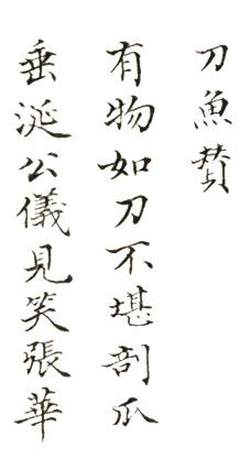 刀魚賛
有物如刀不堪剖瓜
垂涎公儀見笑張華